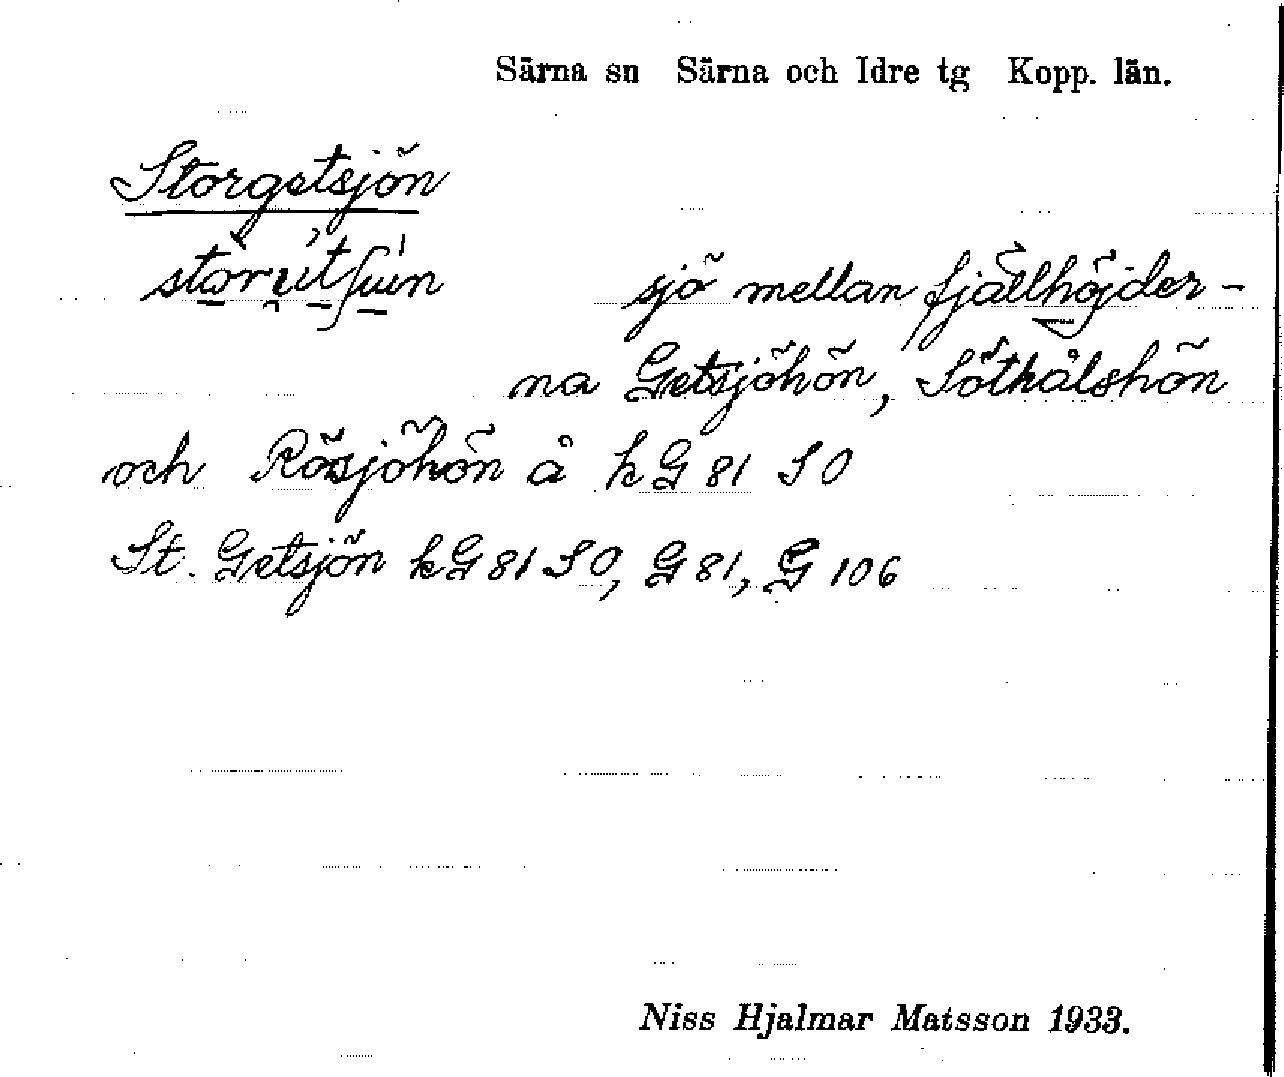 Särna sn Särna och Idre tg Kopp. län.
Storgetsjön
sjö mellan fjällhöjder-
na Getsjöhön, Söthålshön
och Rösjöhön å kG 81 SO
St. Getsjön kG 81 SO, G 81, G 106
Niss Hjalmar Matsson 1933.